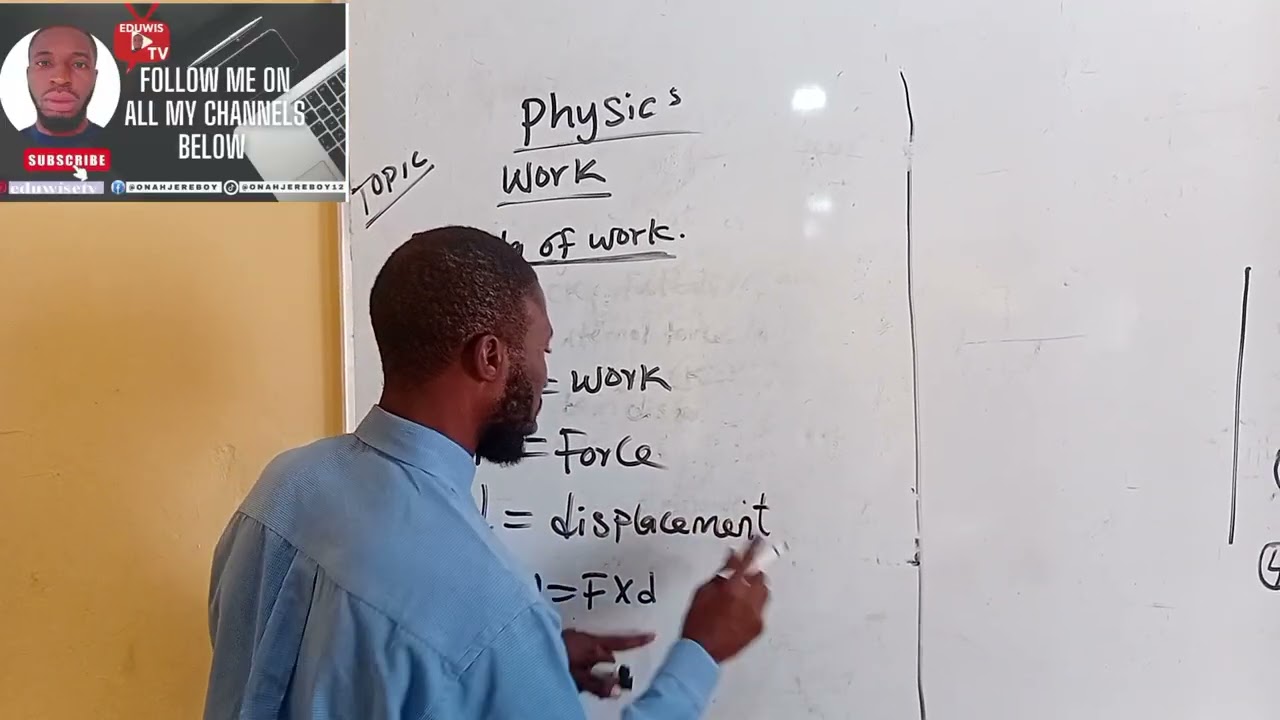 EDUWIS
TV
FOLLOW ME ON
ALL MY CHANNELS
BELOW
SUBSCRIBE
eduwisetv @ONAHJEREBOY @ONAHJEREBOY12
Physics
TOPIC
Work
of work.
= Work
= Force
d = displacement
= F x d